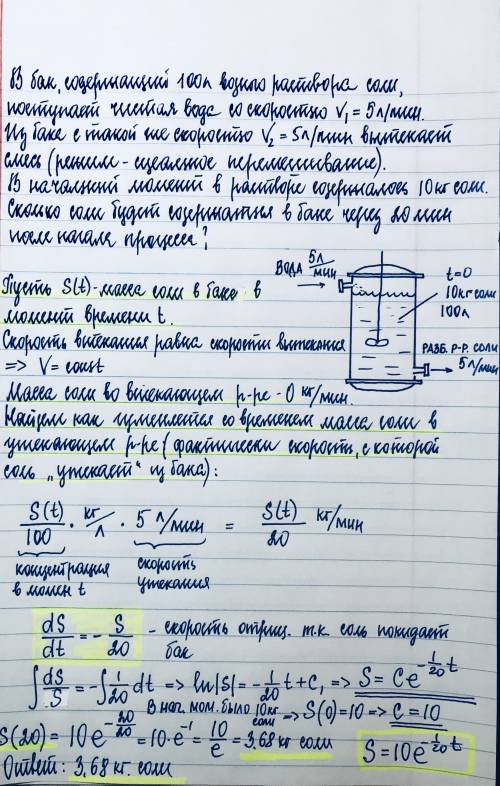 В бак, содержащий 100л водного раствора соли,
поступает чистая вода со скоростью V₁ = 5л/мин.
Из бака с такой же скоростью V₂ = 5л/мин вытекает
смесь (режим - идеальное перемешивание).
В начальный момент в растворе содержалось 10кг соли.
Сколько соли будет содержаться в баке через 20 мин
после начала процесса?
ВОДА 5л/мин
t=0
10кг соли
100л
РАЗБ. Р-Р. СОЛИ
5л/мин
Пусть S(t)-масса соли в баке в
момент времени t.
Скорость втекания равна скорости вытекания
=> V = const
Масса соли во втекающем р-ре - 0 кг/мин.
Найдем как изменяется со временем масса соли в
утекающем р-ре (фактически скорость, с которой
соль „утекает" из бака):
S(t)/100 · кг/л · 5 л/мин = S(t)/20 кг/мин
концентрация в момент t
скорость утекания
dS/dt = - S/20 - скорость отриц. т.к. соль покидает
бак
∫ dS/S = -∫ 1/20 dt => ln|S| = -1/20 t + C₁ => S = Ce^(-1/20 t)
В нач. мом. было 10кг соли => S(0)=10 => C = 10
S(20) = 10e^(-20/20) = 10·e^(-1) = 10/e = 3,68 кг соли
S = 10e^(-1/20 t)
Ответ: 3,68 кг. соли